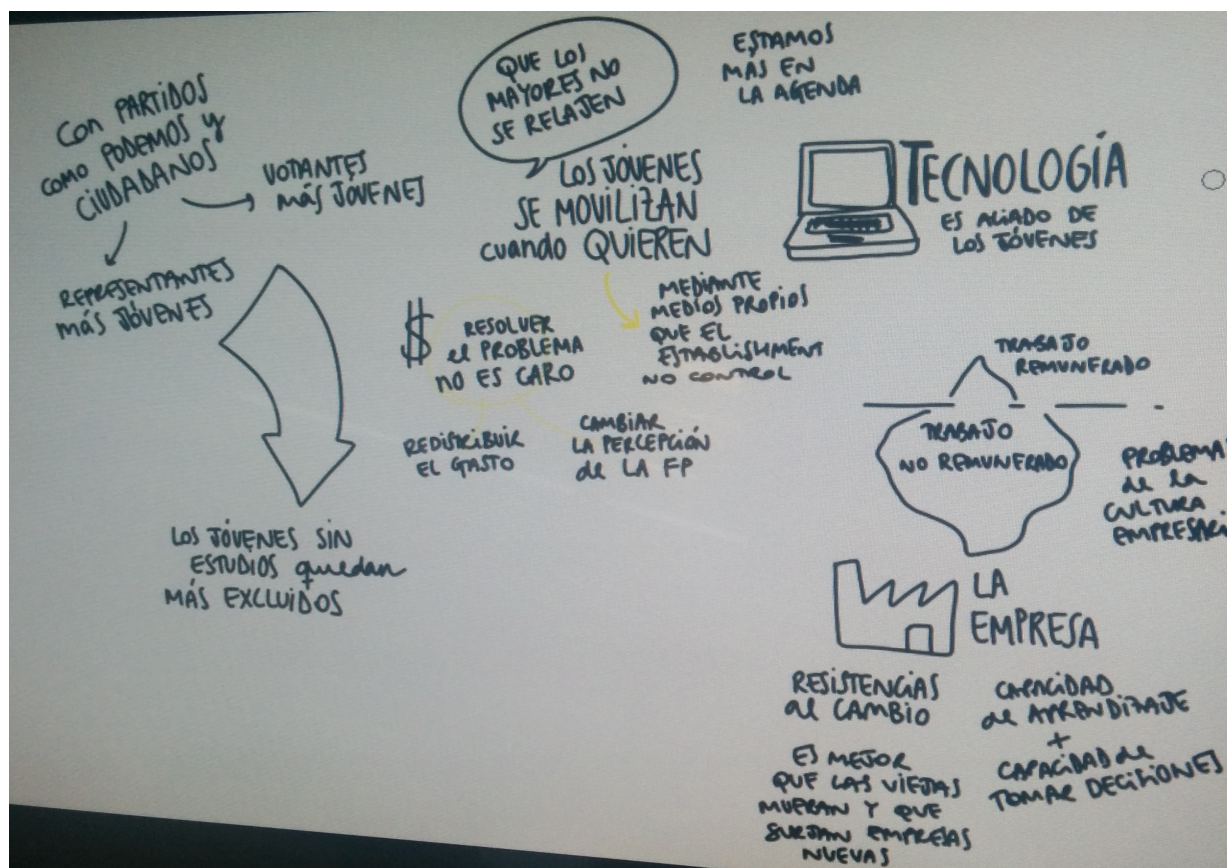 Con PARTIDOS
como PODEMOS y
CIUDADANOS
VOTANTES
más JOVENES
REPRESENTANTES
más JÓVENES
LOS JÓVENES SIN
ESTUDIOS quedan
MÁS EXCLUIDOS
QUE LOS
MAYORES NO
SE RELAJEN
LOS JÓVENES
SE MOVILIZAN
cuando QUIEREN
MEDIANTE
MEDIOS PROPIOS
QUE EL
ESTABLISHMENT
NO CONTROL
$
RESOLVER
el PROBLEMA
NO ES CARO
REDISTRIBUIR
EL GASTO
CAMBIAR
LA PERCEPCIÓN
de LA FP
ESTAMOS
MÁS EN
LA AGENDA
TECNOLOGÍA
ES ALIADO DE
LOS JÓVENES
TRABAJO
REMUNERADO
TRABAJO
NO REMUNERADO
PROBLEMA
de la
CULTURA
EMPRESARI
LA
EMPRESA
RESISTENCIAS
al CAMBIO
ES MEJOR
QUE LAS VIEJAS
MUERAN Y QUE
SURJAN EMPRESAS
NUEVAS
CAPACIDAD
de APRENDIZAJE
+
CAPACIDAD de
TOMAR DECISIONES